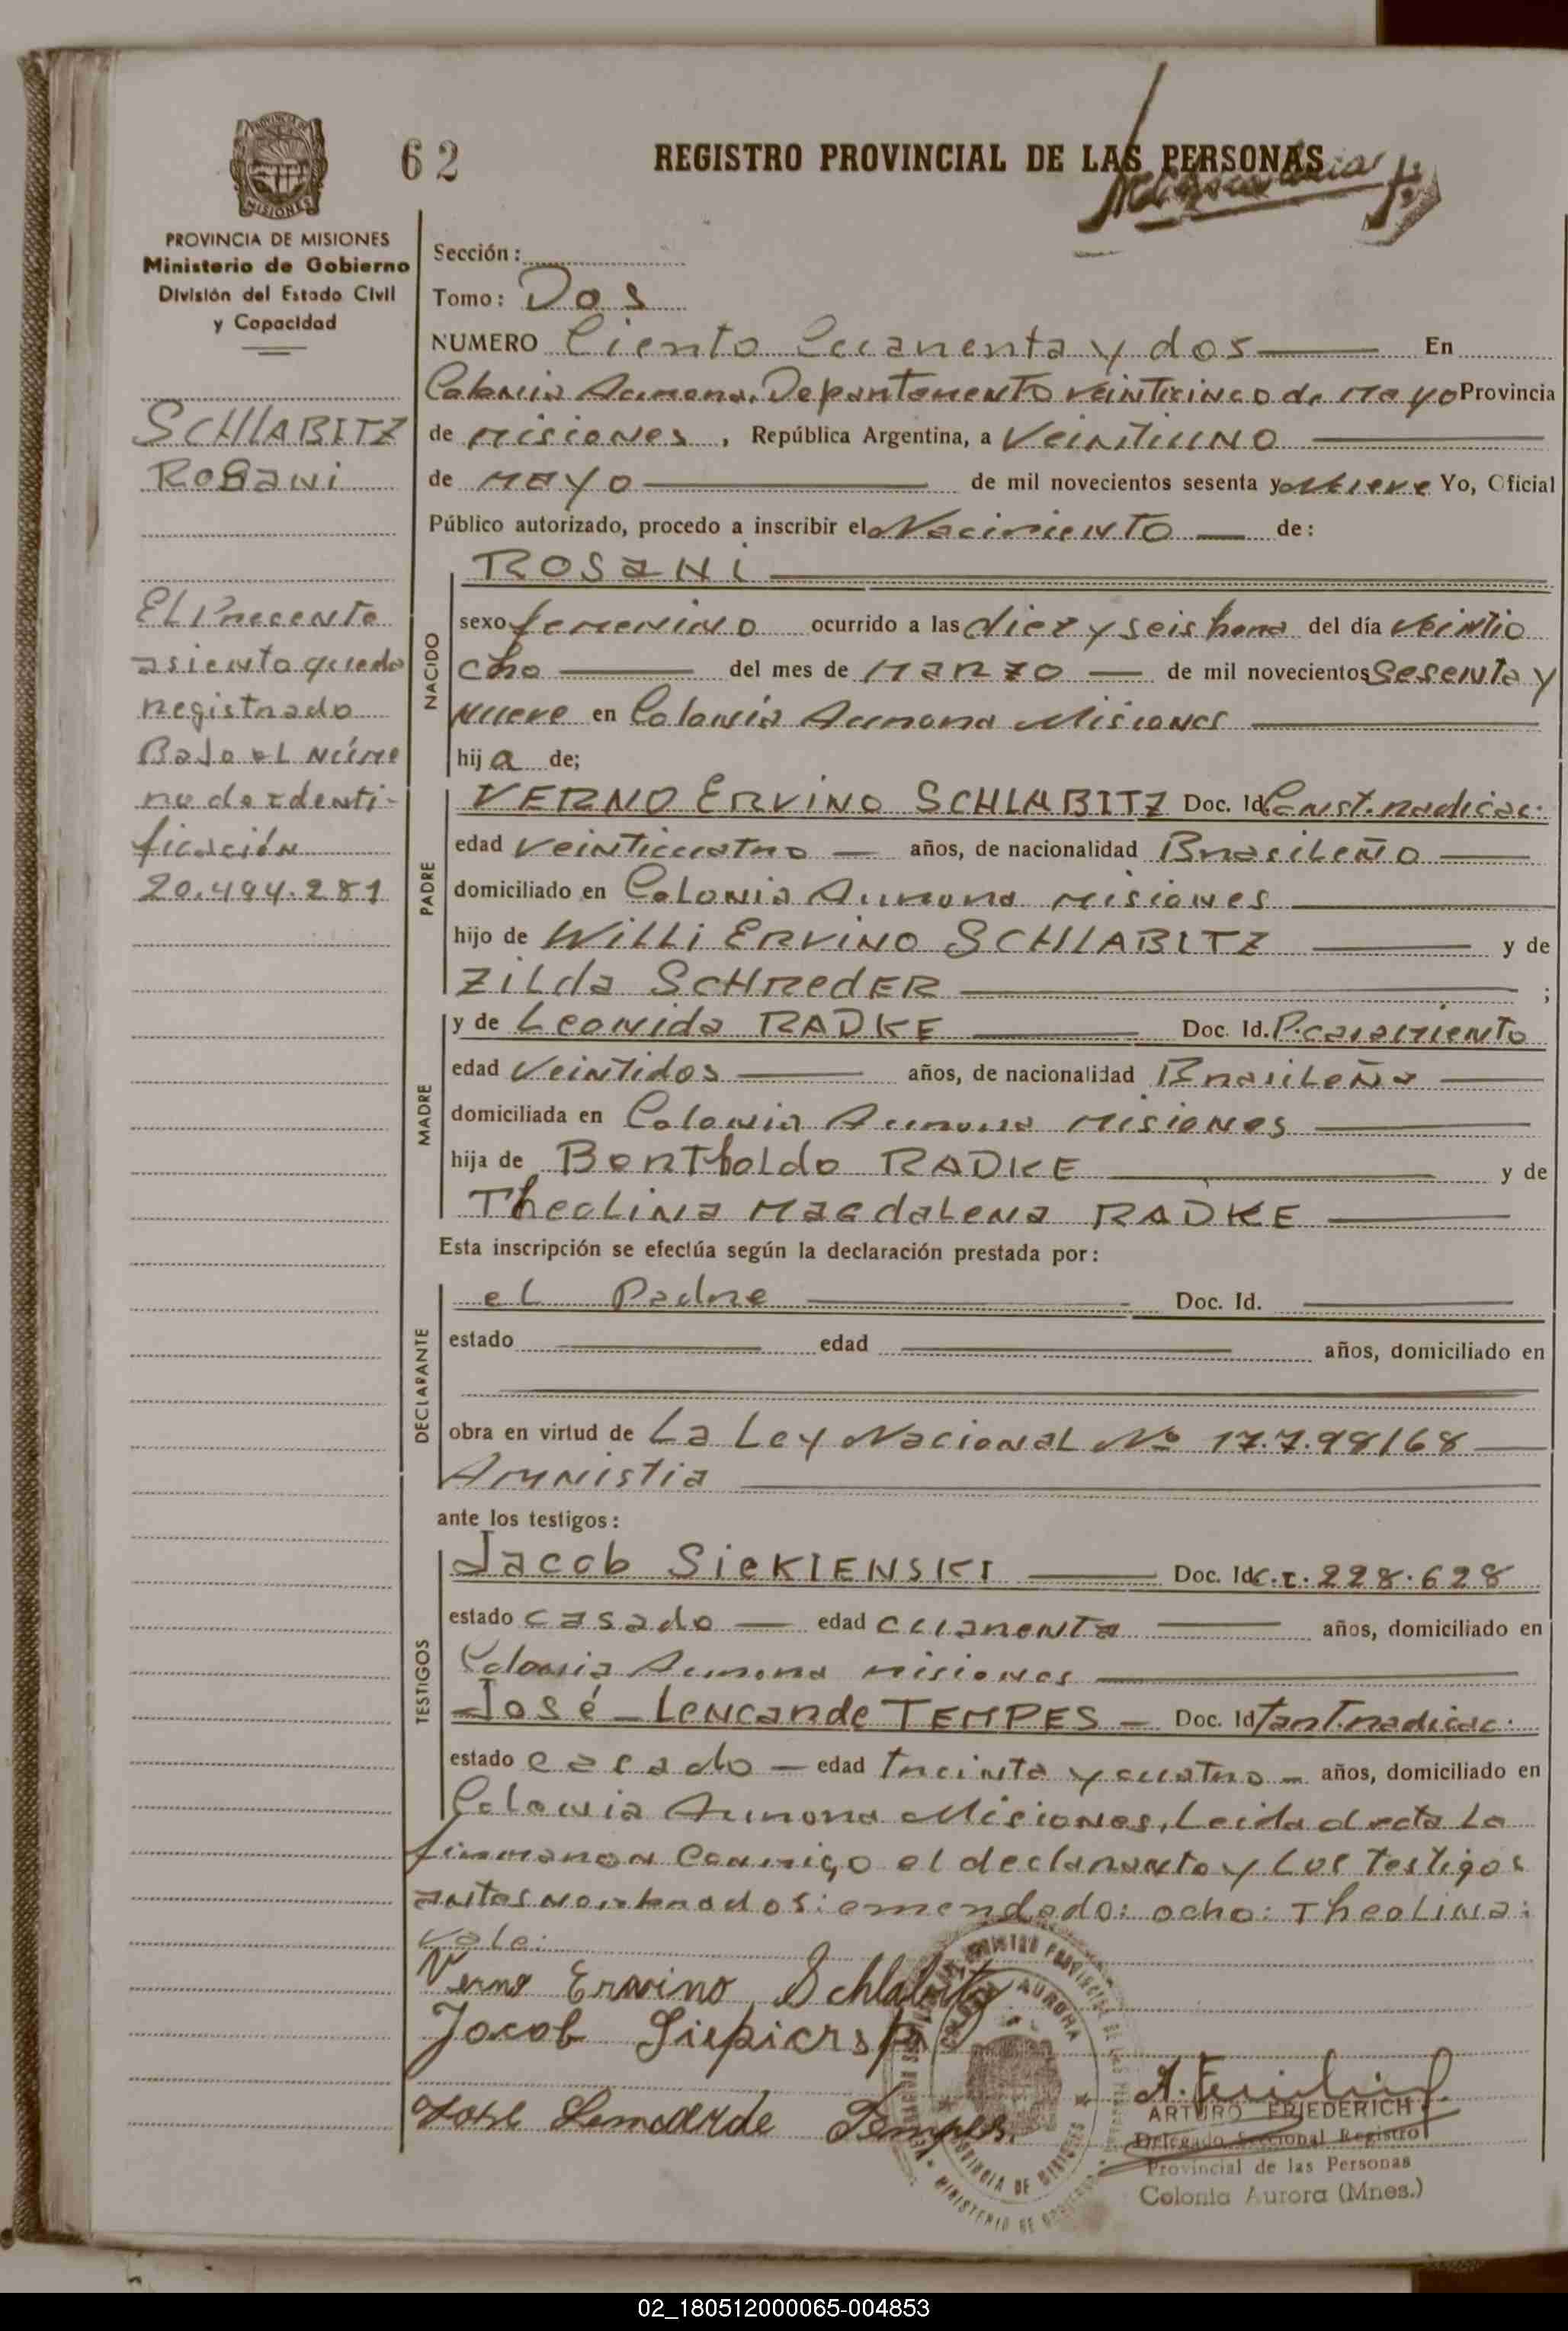 62
REGISTRO PROVINCIAL DE LAS PERSONAS
MISIONES
PROVINCIA DE MISIONES
Ministerio de Gobierno
División del Estado Civil
y Capacidad
SCHLABITZ
ROSani
El Presente
asiento queda
registrado
Bajo el núme
ro de identi-
ficación
20.494.281
Sección:
Tomo: Dos
NUMERO Ciento Cuarenta y dos En
Colonia Aurora, Departamento veinticinco de Mayo Provincia
de Misiones, República Argentina, a veintiuno
de Mayo de mil novecientos sesenta y nueve Yo, Oficial
Público autorizado, procedo a inscribir el Nacimiento de:
NACIDO
ROSani
sexo femenino ocurrido a las diez y seis hora del día veintio
cho del mes de Marzo de mil novecientos sesenta y
nueve en Colonia Aurora Misiones
hija de;
PADRE
VERNO ERVINO SCHLABITZ Doc. Id. Const. radicac.
edad veinticuatro años, de nacionalidad Brasileño
domiciliado en Colonia Aurora Misiones
hijo de Willi ERVINO SCHLABITZ y de
Zilda SCHREdER ;
MADRE
y de Leonida RADKE Doc. Id. P. casamiento
edad veintidos años, de nacionalidad Brasileña
domiciliada en Colonia Aurora Misiones
hija de Bertholdo RADKE y de
Theolina Magdalena RADKE
Esta inscripción se efectúa según la declaración prestada por:
DECLARANTE
el Padre Doc. Id.
estado edad años, domiciliado en
obra en virtud de La Ley Nacional Nº 17.7.98/68
Amnistia
ante los testigos:
TESTIGOS
Jacob SieKIENSKI Doc. Id. C.I. 228.628
estado casado edad cuarenta años, domiciliado en
Colonia Aurora Misiones
José Lencarde TEMPES Doc. Id. radicac.
estado casado edad treinta y cuatro años, domiciliado en
Colonia Aurora Misiones, Leida el acta la
firmaron conmigo el declarante y los testigos
antes nombrados: emendado: ocho: Theolina:
vale:
Verno Ervino Schlabitz
Jacob
José Lencarde Tempes.
AURORA
PROVINCIA DE MISIONES
ARTURO FRIEDERICH
Delegado Seccional Registro
Provincial de las Personas
Colonia Aurora (Mnes.)
02_180512000065-004853